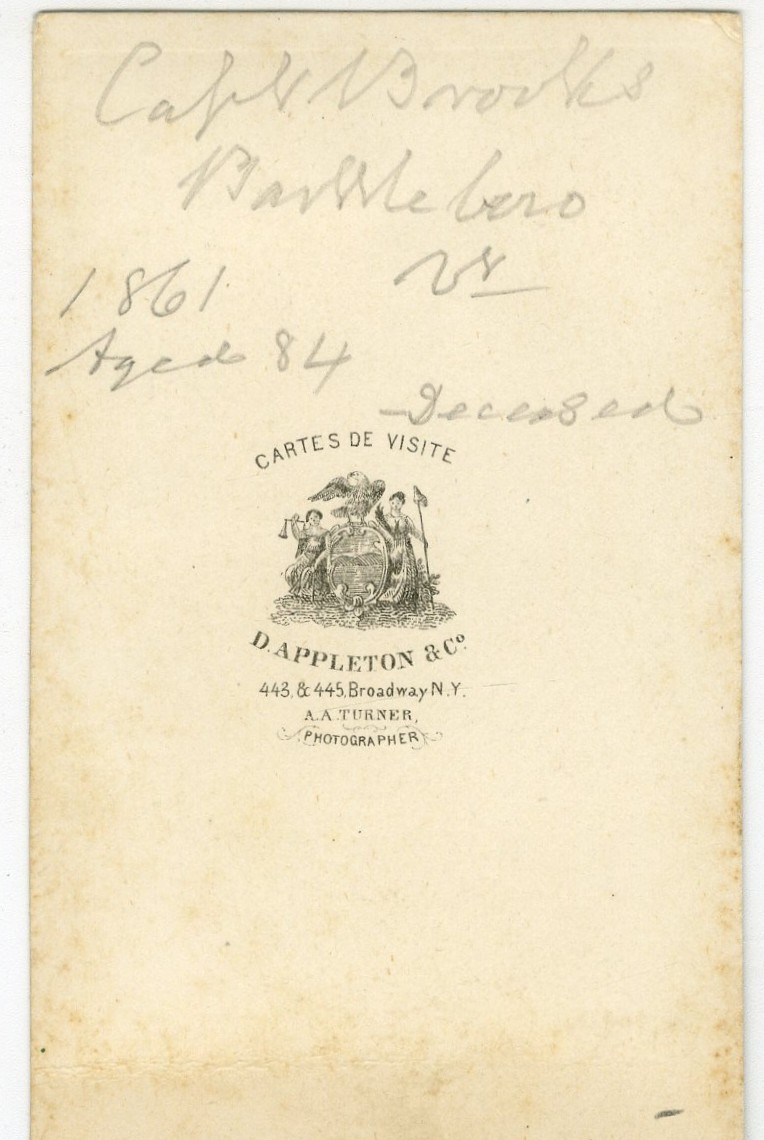 Capt Brooks
Battleboro
Vt
1861
Aged 84
Deceased
CARTES DE VISITE
D. APPLETON & Co.
443, & 445, Broadway N.Y.
A.A. TURNER,
PHOTOGRAPHER